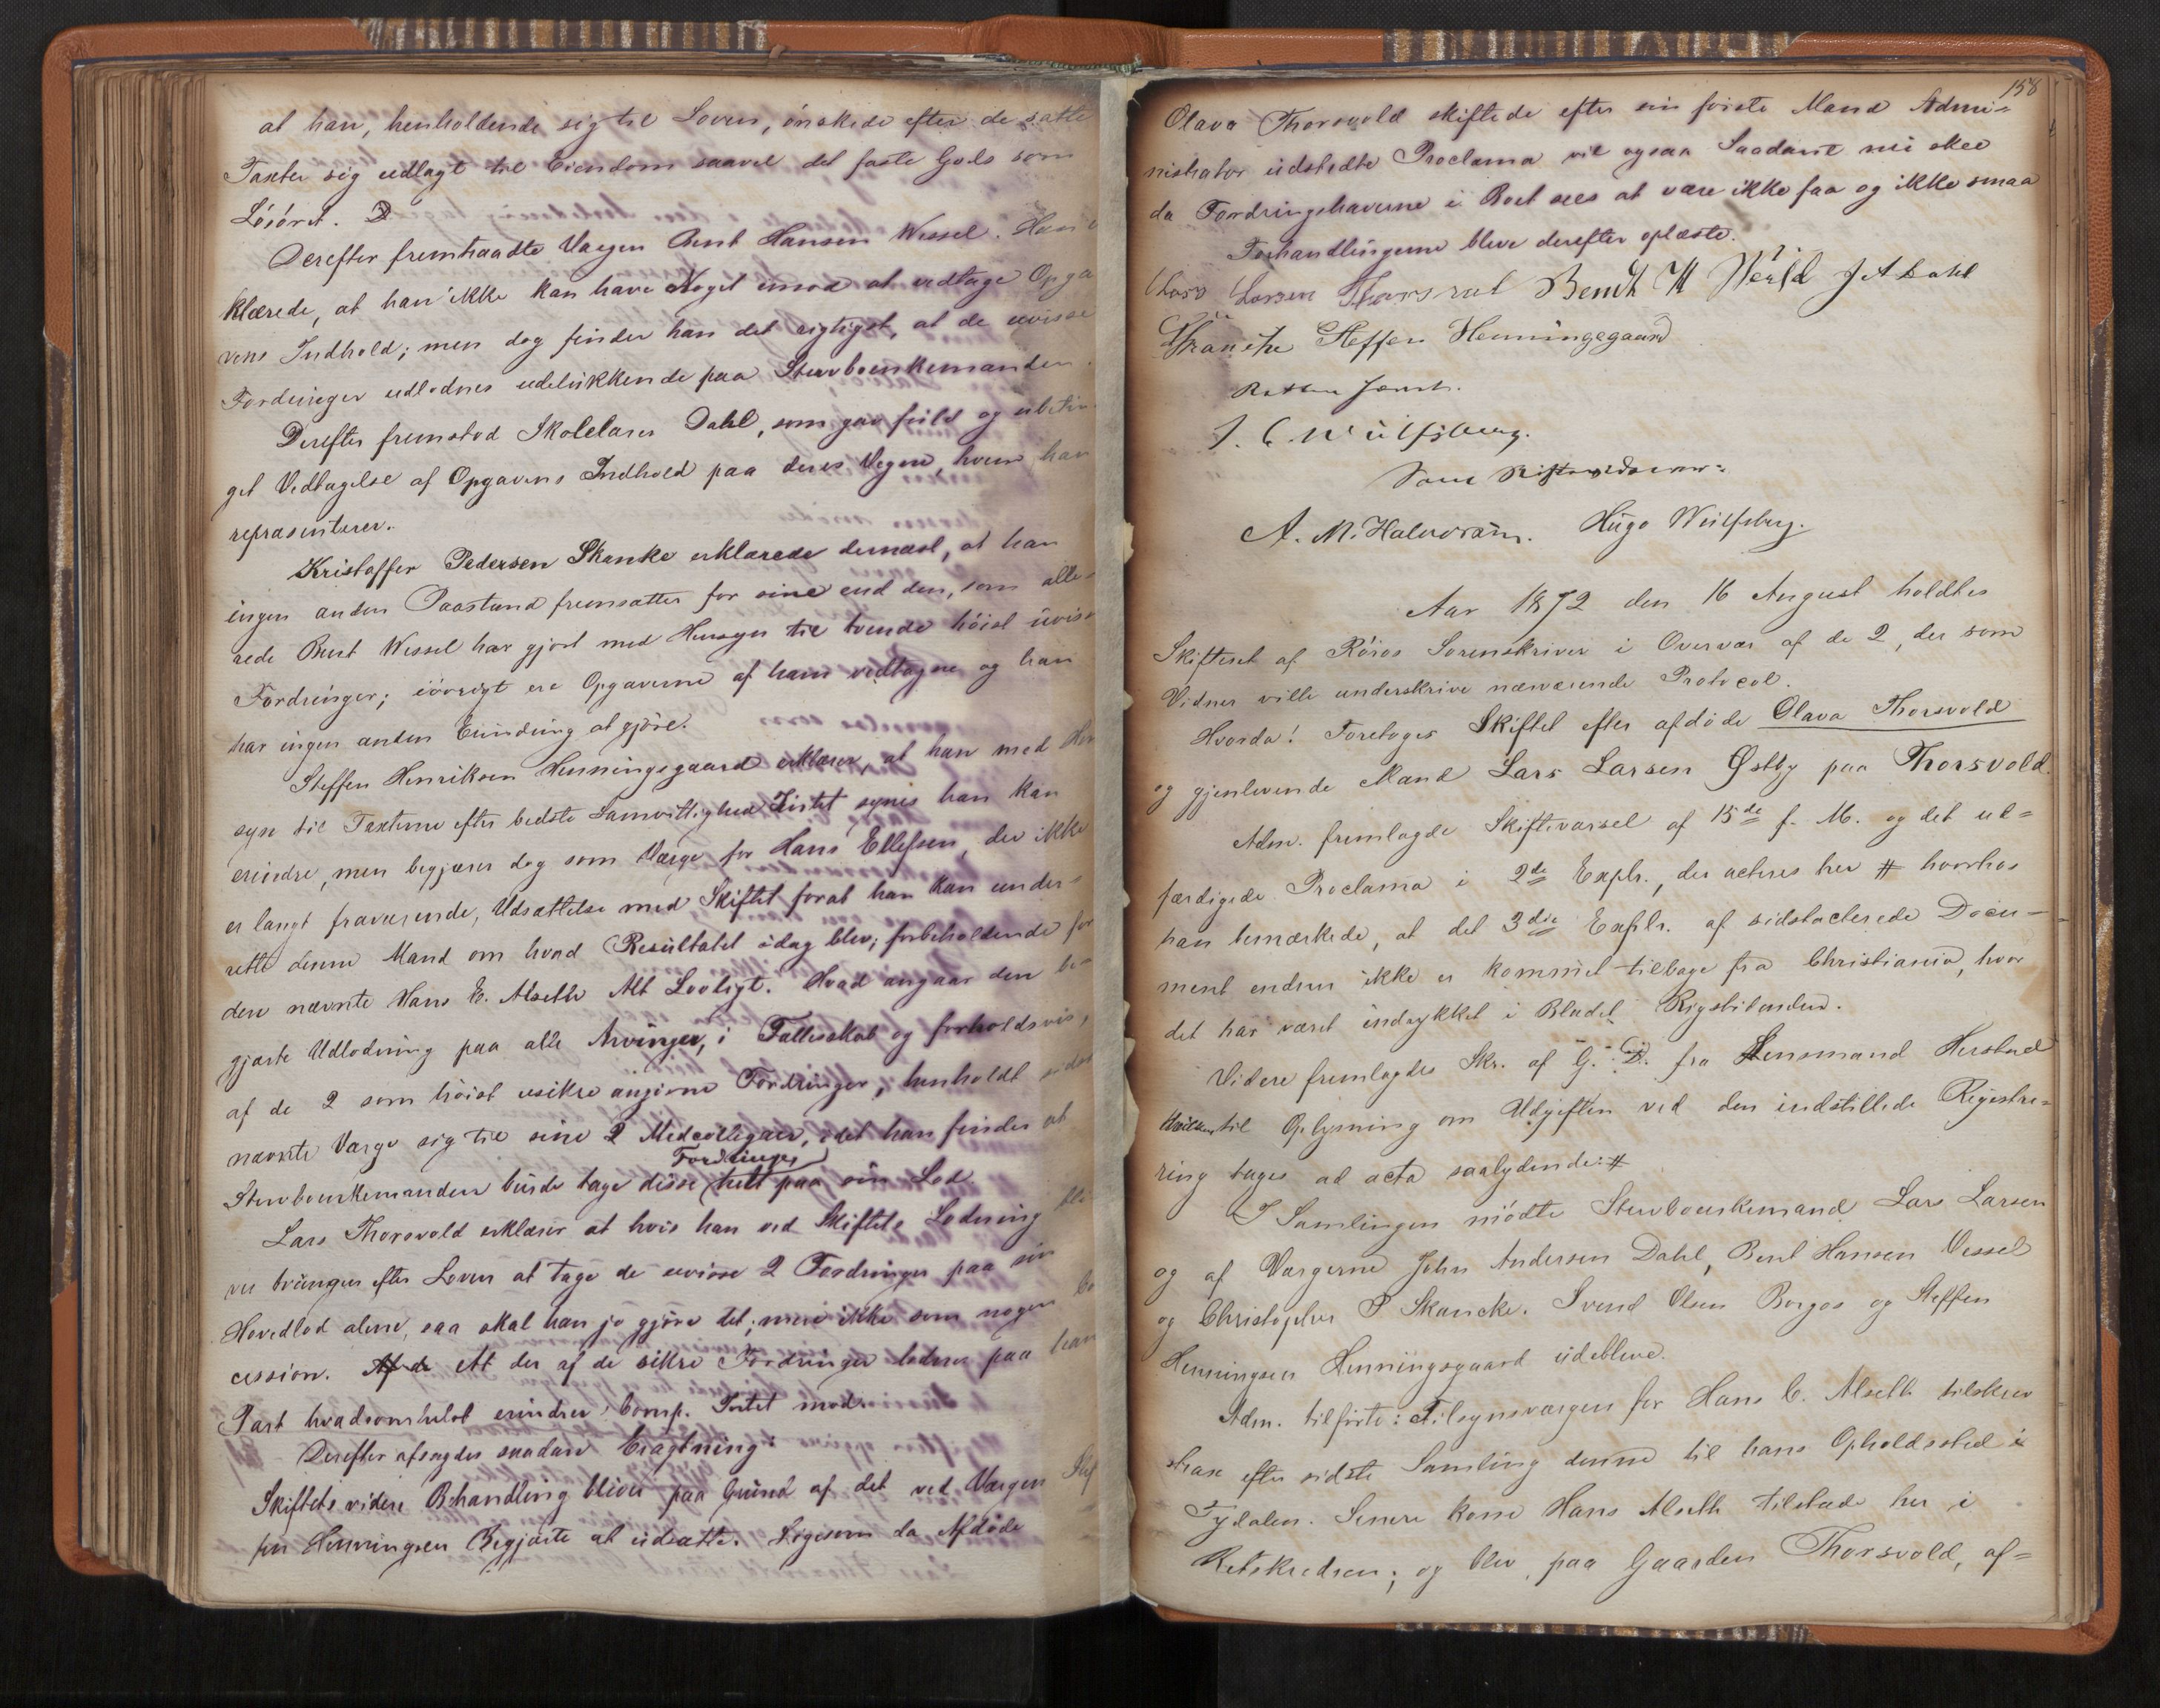 at han, henholdende sig til Loven, ønskede efter de satte
Taxter sig udlagt til Eiendom saavel det faste Gods som
Løsøret.
Derefter fremtraadte Værgen Bent Hansen Wessel. Han
klærede, at han ikke kan have Noget imod at vedtage Opga
vens Indhold; men dog finder han det rigtigst, at de uvisse
Fordringer udlodnes udelukkende paa Stervboenkemanden.
Derefter fremstod Skolelærer Dahl, som gav fuld og ubetin
get Vedtagelse af Opgavens Indhold paa deres Vegne, hvem han
repræsenterer.
Kristoffer Pedersen Skanke erklærede dernæst, at han
ingen anden Paastand fremsætter for sine end den, som alle-
rede Bent Wessel har gjort med Hensyn til tvende høist uvisse
Fordringer; iøvrigt ere Opgaverne af ham vedtagne og han
har ingen anden Erindring at gjøre.
Steffen Henriksen Henningsgaard erklærer, at han med Hen
syn til Taxterne efter bedste Samvittighed Intet synes han kan
erindre, men begjærer dog som Værge for Hans Ellefsen, der ikke
er langt fraværende, Udsættelse med Skiftet forat han kan under-
rette denne Mand om hvad Resultatet idag blev; forbeholdende for
den nævnte Hans E. Alseth Alt Lovligt. Hvad angaar den be-
gjærte Udlodning paa alle Arvinger, i Fællesskab og forholdsvis,
af de 2 som høist usikre angivne Fordringer, henholdt sidst
nævnte Værge sig til sine 2 Medcolleger, idet han finder at
Fordringer
Stervboenkemanden burde tage disse helt paa sin Lod.
Lars Thorsvold erklærer at hvis han ved Skiftets Lodning bli
ver tvungen efter Loven at tage de uvisse 2 Fordringer paa sin
Hovedlod alene, saa skal han jo gjøre det; men ikke som nogen Co
cession. Af de At der af de sikre Fordringer lodnes paa han
Part hvadsomhelst erindrer Comp. Intet mod.
Derefter afsagdes saadan Eragtning:
Skiftets videre Behandling bliver paa Grund af det ved Værgen Stef
fen Henningsen Begjærte at udsætte. Ligesom da Afdøde
158
Olava Thorsvold skiftede efter sin første Mand Admi-
nistrator udstedte Proclama vil ogsaa Saadant nu skee
da Fordringshaverne i Boet sees at være ikke faa og ikke smaa
Forhandlingerne bleve derefter oplæste.
Lars Larsen Thorsvol Bendt H Wesl J A Dahl
Skancke Steffen Henningsgaard
J. C. Wulfsberg.
Som Skiftevidner:
A. M. Halvorsen. Hugo Wulfsberg.
Aar 1872 den 16 August holdtes
Skifteret af Røros Sorenskriver i Overvær af de 2, der som
Vidner ville underskrive nærværende Protocol.
Hvorda! Foretoges Skiftet efter afdøde Olava Thorsvold
og gjenlevende Mand Lars Larsen Østby paa Thorsvold.
Adm. fremlagde Skiftevarsel af 15de f. M. og det ud-
færdigede Proclama i 2de Explr., der acteres her # hvorhos
han bemærkede, at det 3die Explr. af sidstacterede Docu-
ment endnu ikke er kommet tilbage fra Christiania, hvor
det har været indrykket i Bladet Rigstidenden.
Videre fremlagdes Skr. af G. D. fra Lensmand Herstad
hvilken til Oplysning om Udgiften ved den indstillede Registre-
ring tages ad acta saalydende: #
I Samlingen mødte Stervboenkemand Lars Larsen
og af Værgerne John Andersen Dahl, Bent Hansen Vessel
og Christopher P Skancke. Svend Olsen Borgos og Steffen
Henningsen Henningsgaard udebleve.
Adm. tilførte: Tilsynsværgen for Hans E. Alseth tilskrev
strax efter sidste Samling denne til hans Opholdssted i
Tydalen. Senere kom Hans Alseth tilstede her i
Retskredsen; og blev, paa Gaarden Thorsvold, af-